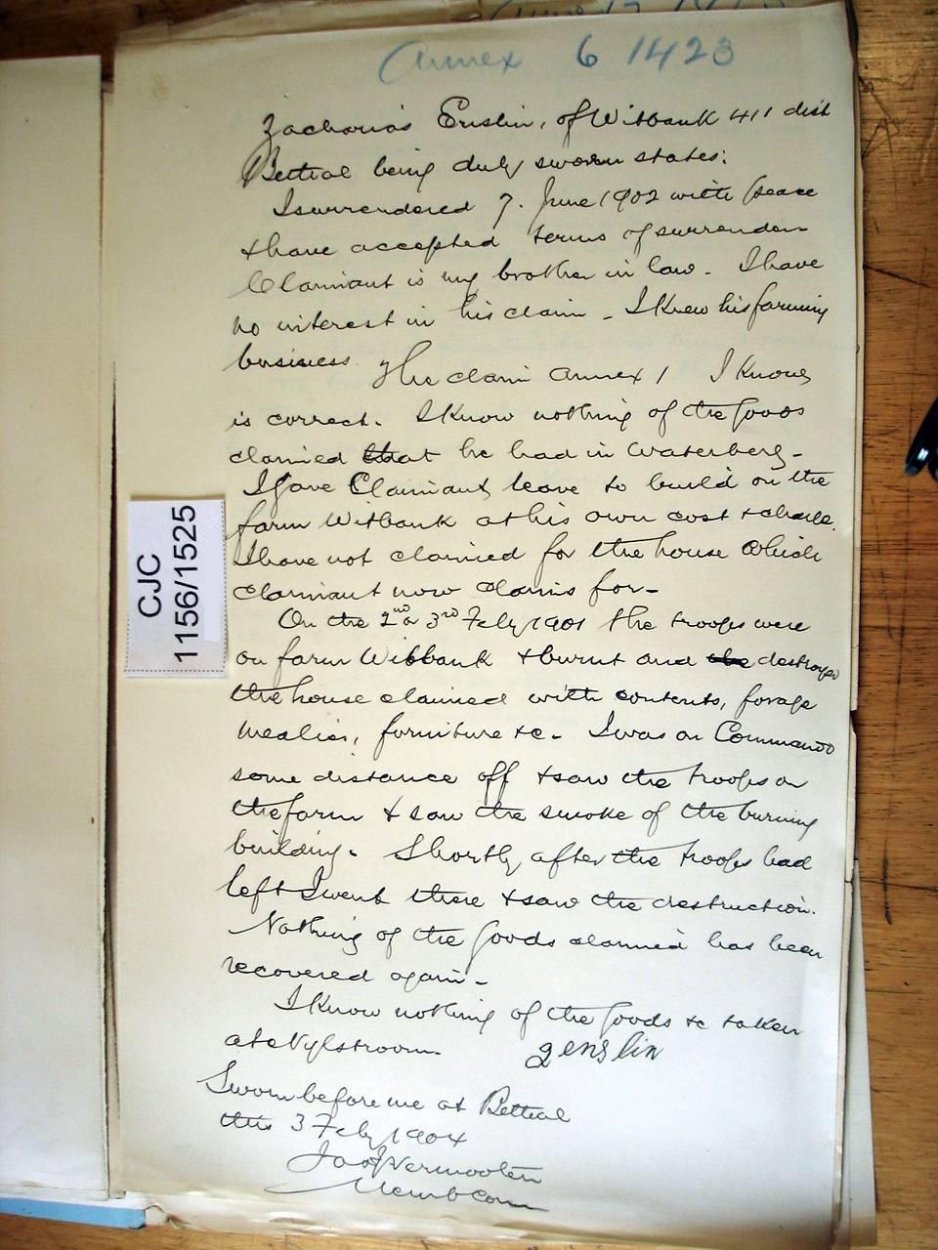 Annex 6 1423
Zacharias Enslin, of Witbank 411 dist
Bethal being duly sworn states:
I surrendered 7. June 1902 with peace
& have accepted terms of surrender
Claimant is my brother in law. I have
no interest in his claim - I knew his farming
business. The claim Annex 1 I know
is correct. I know nothing of the goods
claimed that he had in Waterberg -
I gave Claimant leave to build on the
farm Witbank at his own cost &
I have not claimed for the house which
claimant now claims for -
On the 2nd or 3rd Feby 1901 the troops were
on farm Witbank & burnt and destroyed
the house claimed with contents, forage
mealies, furniture &c - I was on Commando
some distance off & saw the troops on
the farm & saw the smoke of the burning
building. Shortly after the troops had
left I went there & saw the destruction.
Nothing of the goods claimed has been
recovered again -
I know nothing of the goods &c taken
at Nylstroom. Z Enslin
Sworn before me at Bethal
this 3 Feby 1904
Vermooten
Memb Com
CJC
1156/1525